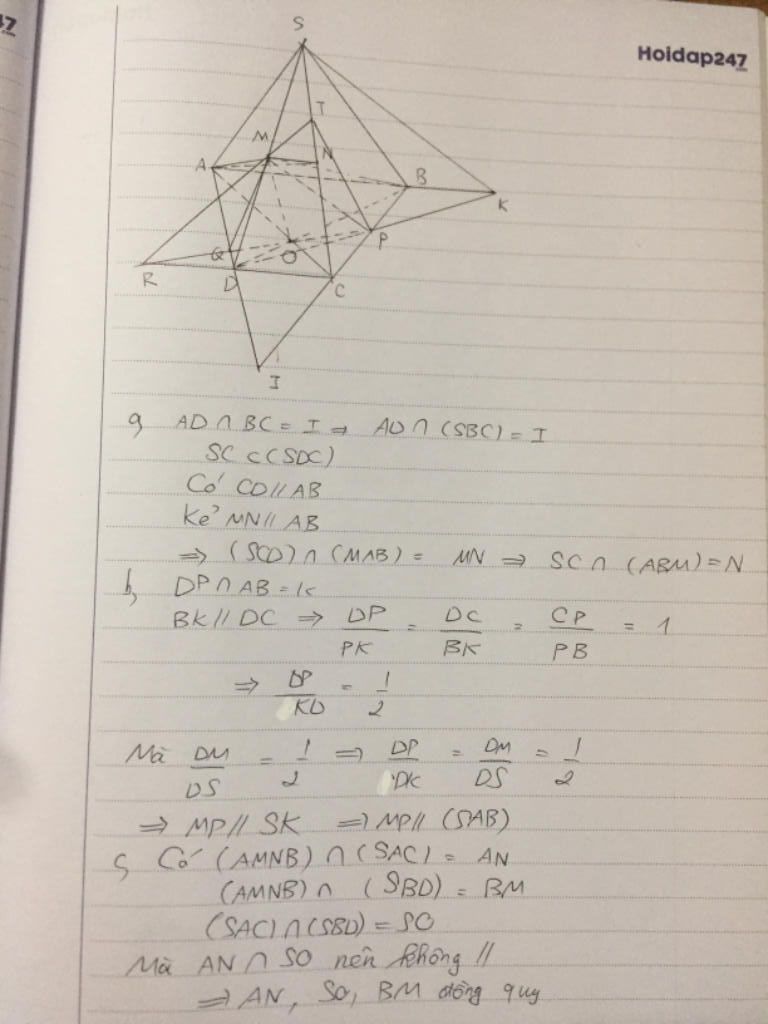 47
S
Hoidap247
.com
T
M
N
A
B
K
Q
O
P
R
D
C
I
a, AD ∩ BC = I ⇒ AD ∩ (SBC) = I
SC ⊂ (SDC)
Có CD // AB
Kẻ MN // AB
⇒ (SCD) ∩ (MAB) = MN ⇒ SC ∩ (ABM) = N
b, DP ∩ AB = K
BK // DC ⇒ DP/PK = DC/BK = CP/PB = 1
⇒ DP/KD = 1/2
Mà DM/DS = 1/2 ⇒ DP/DK = DM/DS = 1/2
⇒ MP // SK ⇒ MP // (SAB)
c, Có (AMNB) ∩ (SAC) = AN
(AMNB) ∩ (SBD) = BM
(SAC) ∩ (SBD) = SO
Mà AN ∩ SO nên không //
⇒ AN, SO, BM đồng quy